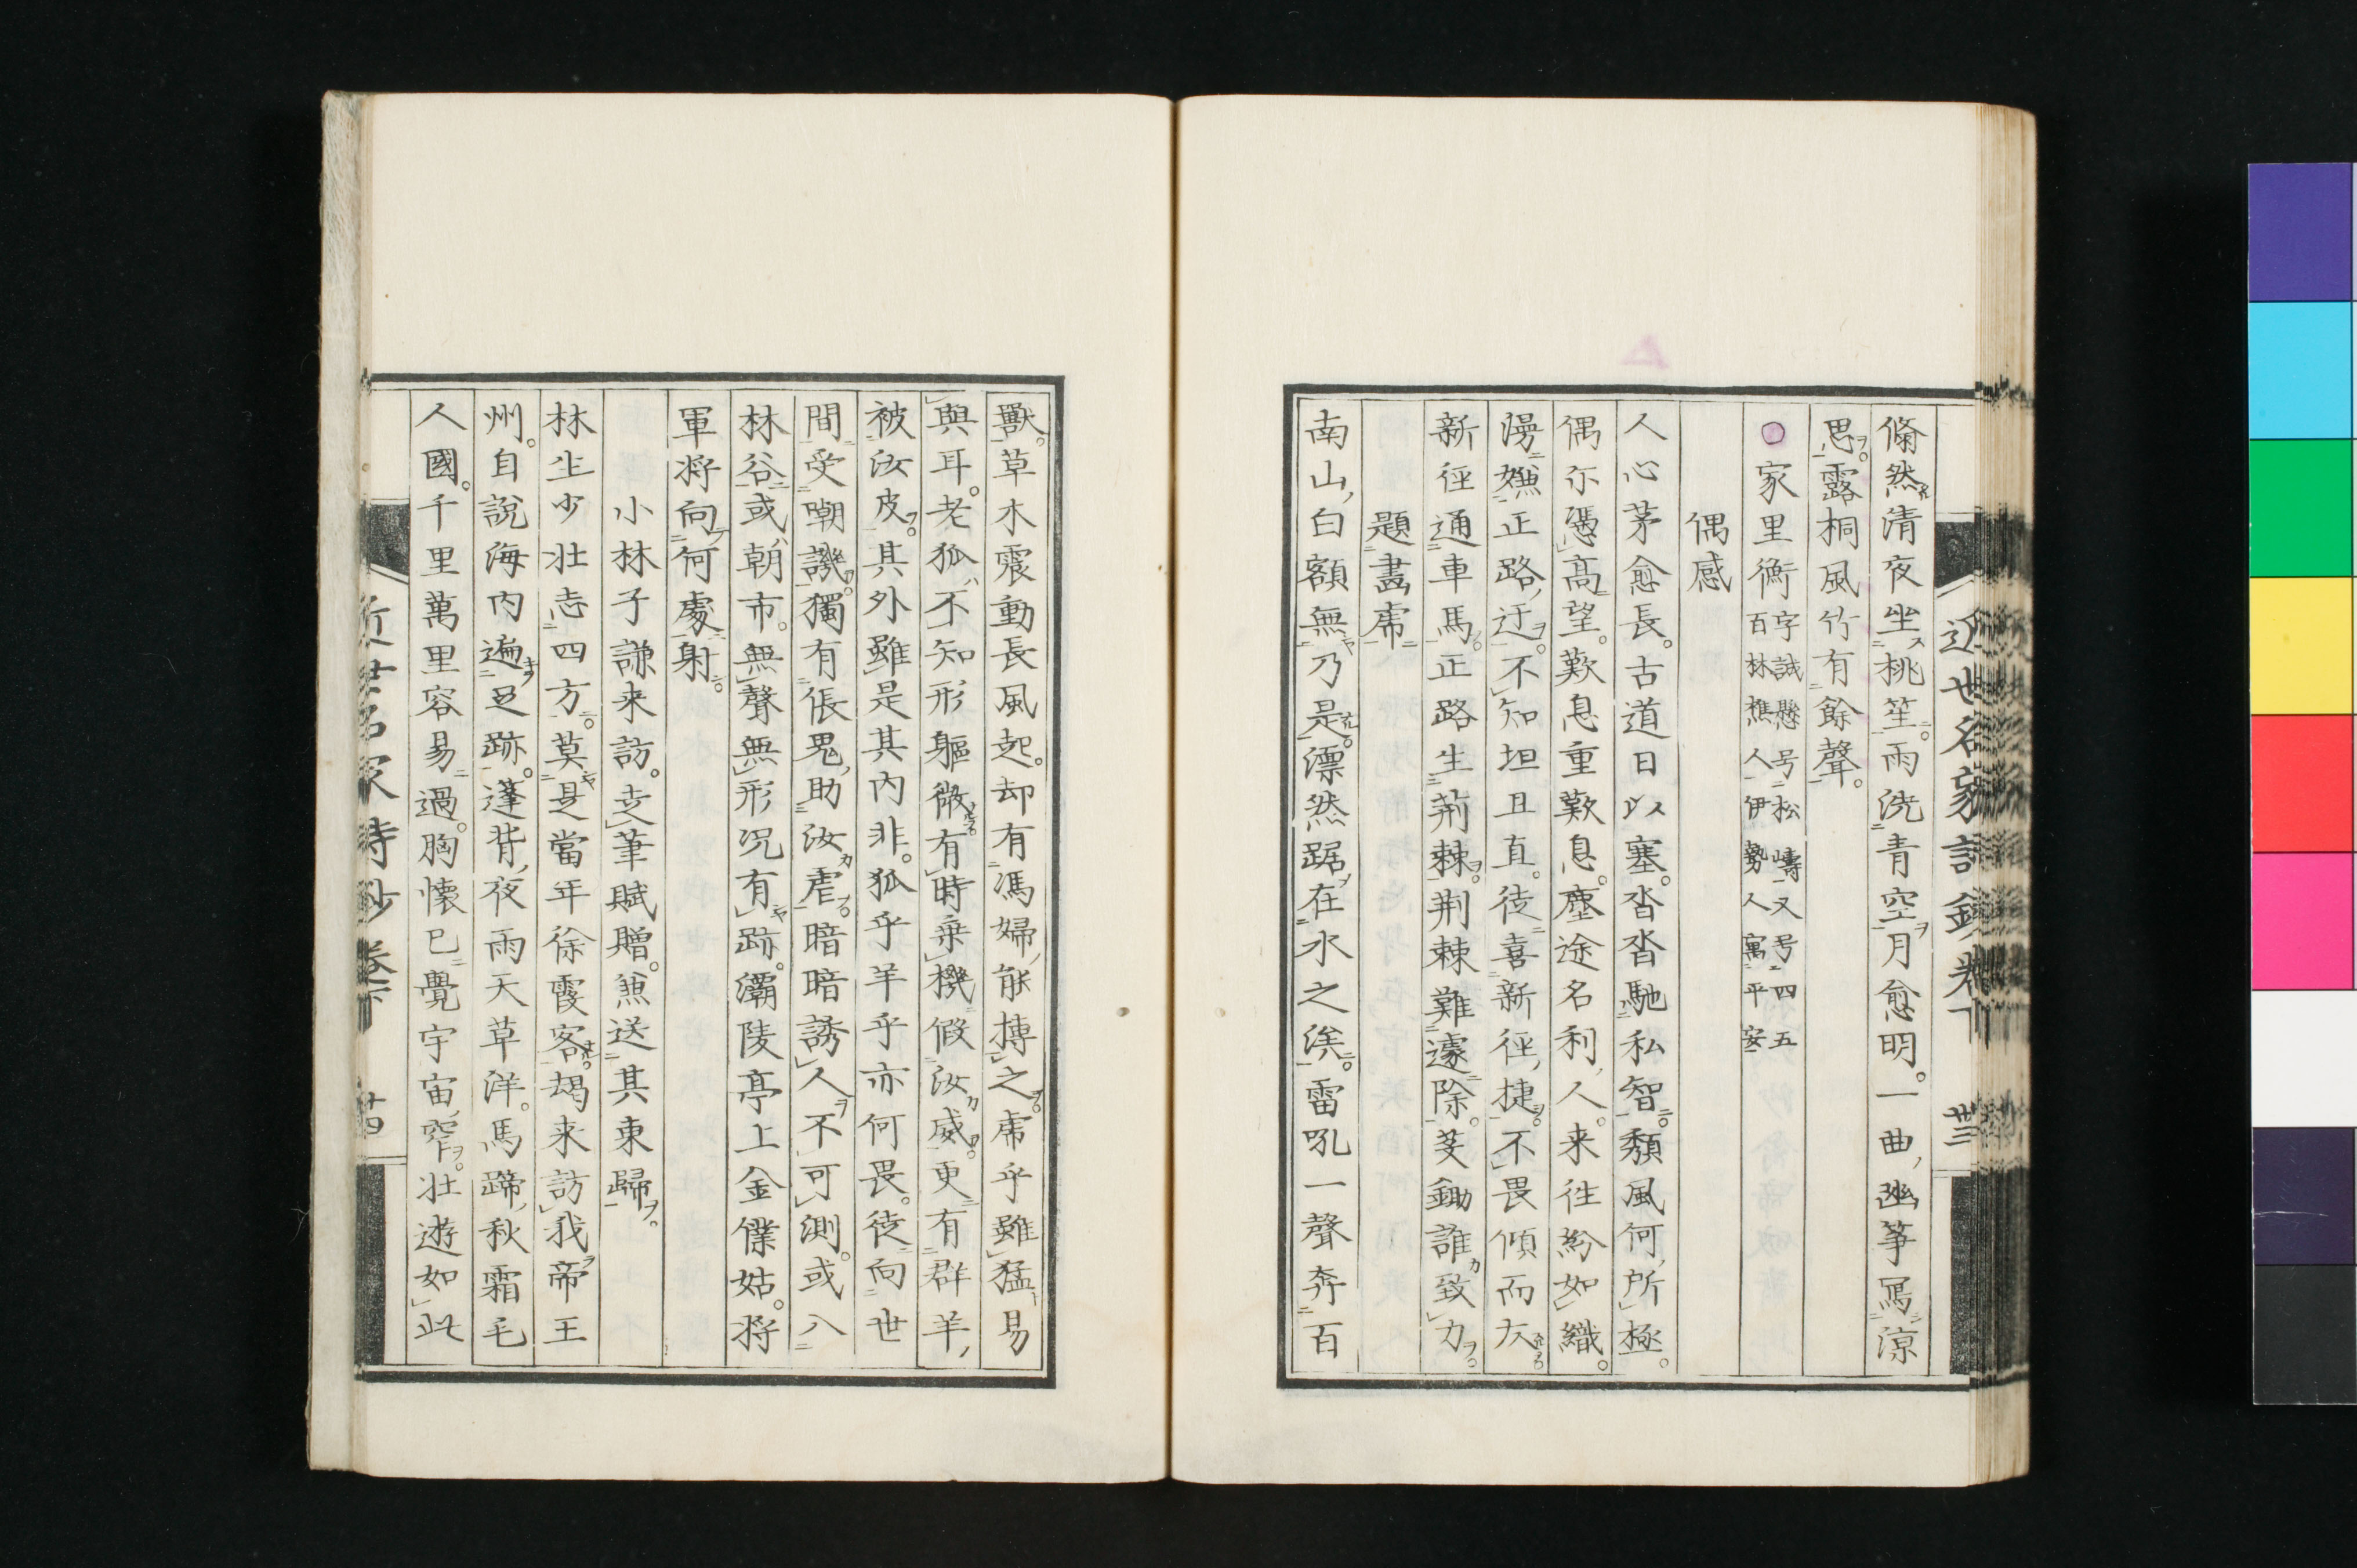 近世名家詩鈔卷下 卅三
翛然清夜坐桃笙。雨洗青空月愈明。一曲幽箏寫凉
思。露桐風竹有餘聲。
家里衡 字誠懸号松嶹又号四五
百林樵人伊勢人寓平安
偶感
人心茅愈長。古道日以塞。沓沓馳私智。頽風何所極。
偶尓憑高望。歎息重歎息。塵途名利人。来往紛如織。
漫嫌正路迂。不知坦且直。徒喜新徑捷。不畏傾而仄。
新徑通車馬。正路生荊棘。荊棘難遽除。芟鋤誰致力。
題畫虎
南山白額無乃是。漂然踞在水之涘。雷吼一聲奔百
獸。草木震動長風起。却有馮婦能搏之。虎乎雖猛易
與耳。老狐不知形軀微。有時乗機假汝威。更有群羊
被汝皮。其外雖是其内非。狐乎羊乎亦何畏。徒向世
間受嘲譏。獨有倀鬼助汝虐。暗暗誘人不可測。或入
林谷或朝市。無聲無形況有跡。灞陵亭上金僕姑。將
軍將向何處射。
小林子謙来訪。走筆賦贈。兼送其東歸。
林生少壮志四方。莫是當年徐霞客。朅来訪我帝王
州。自説海内遍足跡。蓬背夜雨天草洋。馬蹄秋霜毛
人國。千里萬里容易過。胸懷已覺宇宙窄。壮遊如此
近世名家詩鈔卷下